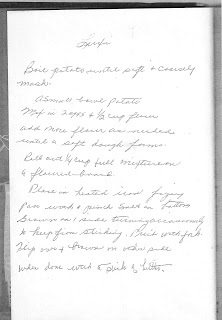 Boil potato until soft & coarsely
mash.
A small bowl potato
Mix in 2 eggs & ½ cup flour
add more flour as needed
until a soft dough forms.
Roll out ¼ cup full mixture on
a floured board.
Place in heated iron frying
pan with a pinch
Brown on 1 side turning occasionally
to keep from sticking. Prick with fork
Flip over & brown on other side
When done with & butter.